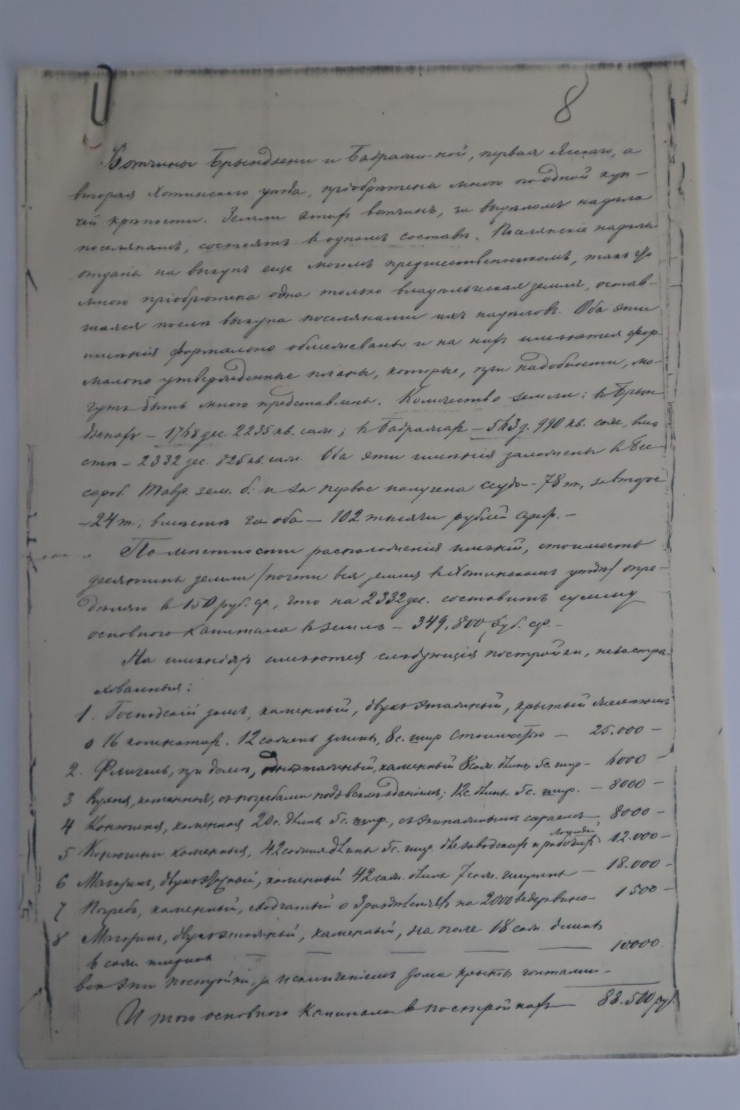 8
Вотчины Брынзены и Бабрашской, первая Ясскаго, а
вторая Хотинскаго уезда, прiобретены мною по одной куп-
чей крепости. Земли этих вотчин, за выделом надела
поселянам, состоят в одном составе. Поселянскiе наделы
отданы на выкуп еще моим предшественником, так что
мною прiобретена одна только владельческая земля, остав-
шаяся после выкупа поселянами их наделов. Оба эти
именiя формально обмежеваны и на них имеются фор-
мально утвержденные планы, которые, при надобности, мо-
гут быть мною представлены. Количество земли: в Брын-
зенах – 1748 дес. 2235 кв. саж.; в – 583 д. 990 кв. саж., вме-
сте – 2332 дес. 825 кв. саж. Оба эти именiя заложены в Бес-
сараб. Тавр. зем. б. и за первое получена ссуда – 78 т., за второе
– 24 т.; вместе за оба – 102 тысячи рублей сереб. –
По местности расположенiя именiй, стоимость
десятины земли /почти вся земля в Хотинском уезде/ опре-
деляю в 150 руб. ср., что на 2332 дес. составит сумму
основного капитала в земле – 349.800 руб. ср. –
На именiях имеются следующiя постройки, незастра-
хованныя:
1. Господскiй дом, каменный, двухэтажный, крытый железом
о 16 комнатах. 12 сажень длины, 8 с. шир. стоимостью – 25.000 –
2. Флигель, при доме, одноэтажный, каменный 8 саж. длины 5 с. шир. – 4000 –
3 Кухня, каменная, с погребами под всем зданiем; 12 с. длины 5 с. шир. – 8000 –
4 Конюшня, каменная 20 с. длины 5 с. шир., с экипажным сараем – 8000 –
5 Конюшни каменныя, 42 сажня длины 5 с. шир. для заводских и рабочих лошадей 12.000 –
6 Магазин, двухэтажный, каменный 42 саж. длины 7 саж. ширины – 18.000 –
7 Погреб, каменный, на 2000 ведер вина – 1500 –
8 Магазин, двухэтажный, каменный, на поле 18 саж. длины
в саж. ширины – – – – 10000.
все эти постройки, за исключенiем дома крыты гонтами –
Итого основного капитала в постройках 88.500 ру